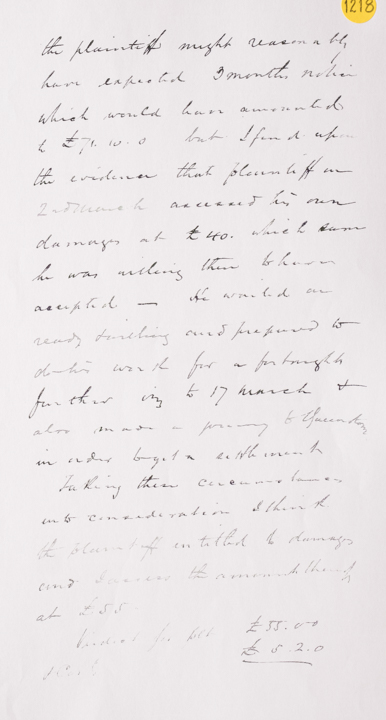 1218
the plaintiff might reasonably
have expected 3 months notice
which would have amounted
to £71.10.0 but I find upon
the evidence that plaintiff on
2nd March assessed his own
damages at £40. which sum
he was willing then to have
accepted — He waited on
ready willing and prepared to
do his work for a fortnight
further viz to 17 march &
also made a journey to Queenstown
in order to get a settlement
Taking these circumstances
into consideration I think
the plaintiff entitled to damages
and I assess the amount thereof
at £55.
Verdict for £55.00
£5.2.0